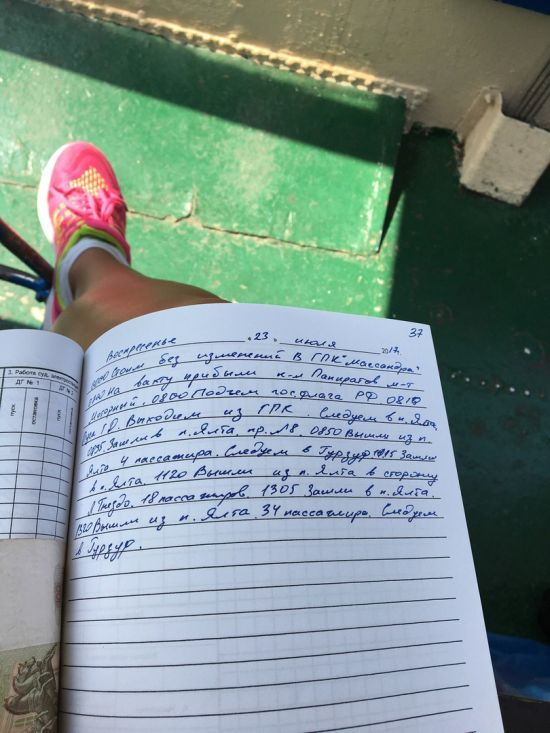 37
Воскресенье «23» июля 2017г.
0000 Стоим без изменений в ГПК "Массандра".
0800 На вахту прибыли к-н Панкратов м-т
Нагорный. 0800 Подъем гос.флага РФ. 0810
Выходим из ГПК. Следуем в п. Ялта.
0835 Зашли в п. Ялта пр. №8. 0850 Вышли из п.
Ялта 4 пассажира. Следуем в Гурзуф. Зашли
в п. Ялта. 1120 Вышли из п. Ялта в сторону
Л. Гнездо. 18 пассажиров. 1305 Зашли в п. Ялта.
1320 Вышли из п. Ялта. 34 пассажира. Следуем
в Гурзуф.
3. Работа суд. электростанции
ДГ № 1
ДГ № 2
пуск
остановка
пуск